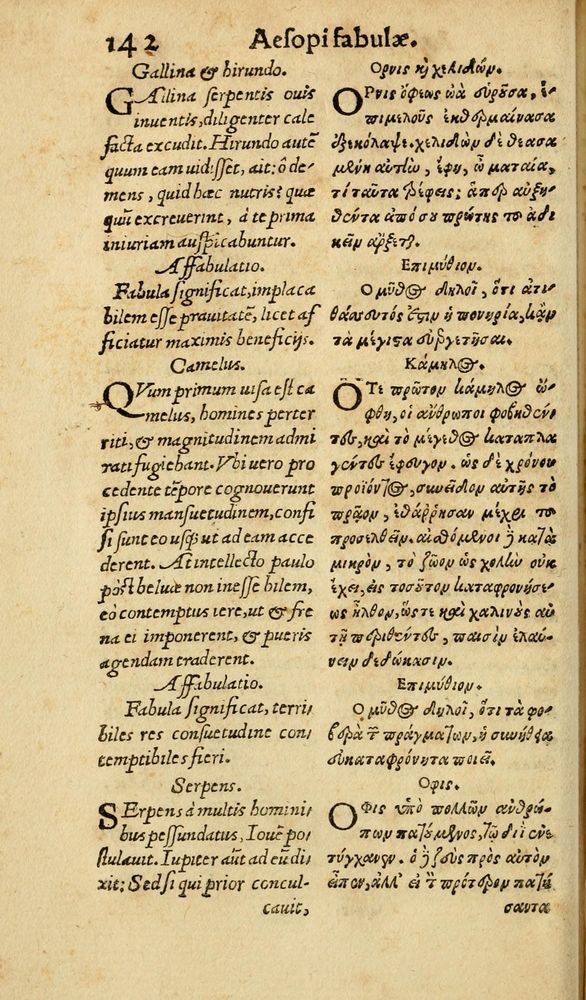 142 Aesopi fabulæ.
Gallina & hirundo.
GAllina serpentis ouis
inuentis, diligenter cale
facta excudit. Hirundo autẽ
quum eam uidisset, ait: ô de-
mens, quid hæc nutris? quæ
quũ excreuerint, à te prima
iniuriam auspicabuntur.
Affabulatio.
Fabula significat, implaca
bilem esse prauitatẽ, licet af
ficiatur maximis beneficijs.
Camelus.
QVum primum uisa est ca
melus, homines perter
riti, & magnitudinem admi
rati fugiebant. Vbi uero pro
cedente tẽpore cognouerunt
ipsius mansuetudinem, confi
si sunt eo usq; ut ad eam acce
derent. At intellecto paulo
pòst beluæ non inesse bilem,
eò contemptus iere, ut & fre
na ei imponerent, & pueris
agendam traderent.
Affabulatio.
Fabula significat, terri
biles res consuetudine con
temptibiles fieri.
Serpens.
SErpens à multis homini
bus pessundatus, Iouẽ po
stulauit. Iupiter aũt ad eũ di
xit: Sed si qui prior concul-
cauit,
Ορνις καὶ χελιδών.
ΟΡνις ὄφεως ὠὰ εὑροῦσα, ἐ-
πιμελοῦς ἐκθερμαίνασα
ἐξεκόλαψε. χελιδὼν δὲ θεασα
μένη αὐτὴν, ἔφη, ὦ ματαία,
τί ταῦτα τρέφεις; ἅπερ αὐξη-
θέντα ἀπὸ σοῦ πρώτης τοῦ ἀδι
κεῖν ἄρξεται.
Επιμύθιον.
Ο μῦθος δηλοῖ, ὅτι ἀτι
θάσσευτός ἐστιν ἡ πονηρία, κἂν
τὰ μέγιστα εὐεργετῆσαι.
Κάμηλος.
ΟΤε πρῶτον κάμηλος ὤ-
φθη, οἱ ἄνθρωποι φοβηθέν-
τες, καὶ τὸ μέγεθος καταπλα
γέντες ἔφευγον. ὡς δὲ χρόνου
προϊόντος, συνεῖδον αὐτῆς τὸ
πρᾶον, ἐθάρρησαν μέχρι τοῦ
προσελθεῖν. αἰσθόμενοι δὲ κατὰ
μικρὸν, τὸ ζῶον ὡς χολὴν οὐκ
ἔχει, εἰς τοσοῦτον καταφρονήσε-
ως ἦλθον, ὥστε καὶ χαλινοὺς αὐ
τῇ περιθέντες, παισὶν ἐλαύ-
νειν δεδώκασιν.
Επιμύθιον.
Ο μῦθος δηλοῖ, ὅτι τὰ φο-
βερὰ τῶν πραγμάτων, ἡ συνήθεια
εὐκαταφρόνητα ποιεῖ.
Οφις.
ΟΦις ὑπὸ πολλῶν ἀνθρώ-
πων πατούμενος, τῷ διὶ ἐνε
τύγχανεν. ὁ δὲ ζεὺς πρὸς αὐτὸν
εἶπεν, ἀλλ' εἰ τὸν πρότερον πατή
σαντα